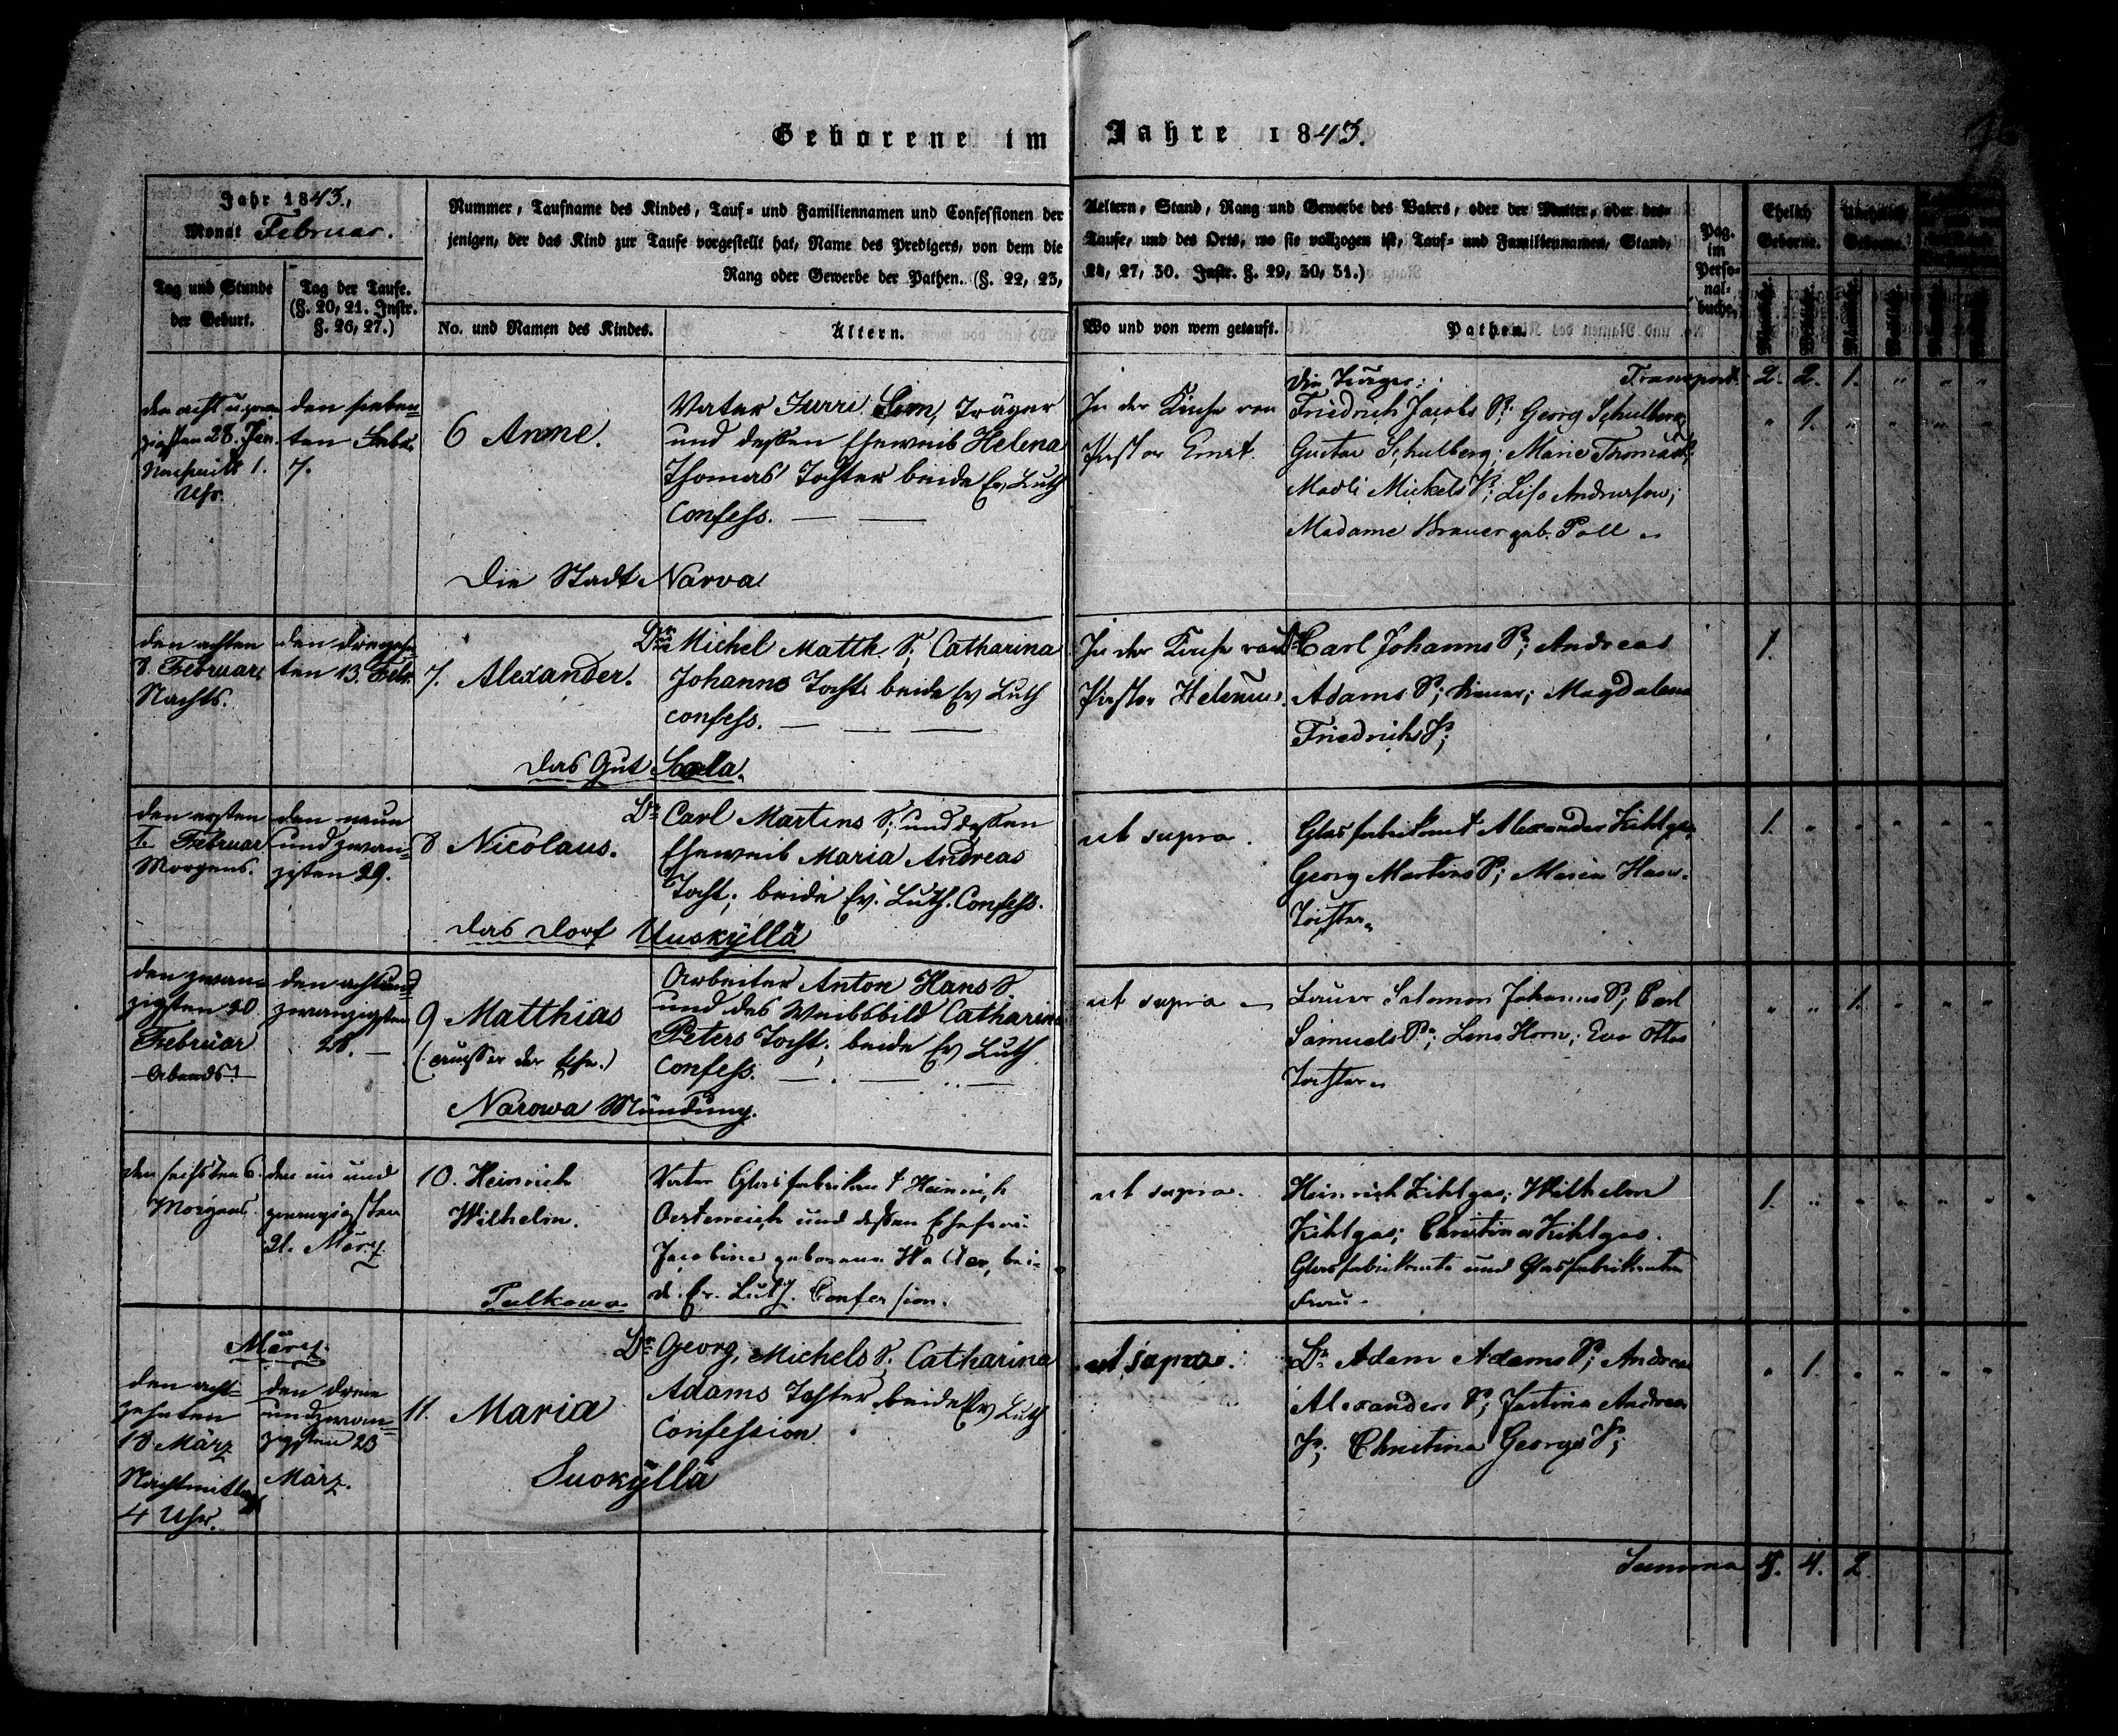 Geborene im Jahre 1843.
Jahr 1843.
Monat Februar.
Tag und Stunde
der Geburt.
Tag der Taufe.
(§. 20, 21. Instr.
§. 26, 27.)
Nummer, Taufname des Kindes, Tauf- und Familiennamen und Confessionen der
jenigen, der das Kind zur Taufe vorgestellt hat, Name des Predigers, von dem die
Rang oder Gewerbe der Pathen. (§. 22, 23,
No. und Namen des Kindes.
Altern.
Aeltern, Stand, Rang und Gewerbe des Vaters, oder der Mutter, oder des-
Taufe, und des Orts, wo sie vollzogen ist, Tauf- und Familiennamen, Stand,
24, 27, 30. Instr. §. 29, 30, 31.)
Wo und von wem getauft.
Pathen.
Pag.
im
Perso-
nal-
buche.
Ehelich
Geborne.
Transport 2. 2. 1. " " "
den acht u. zwan
zigsten 28. Jan.
Nachmitt. 1.
Uhr.
den sieben
ten Febr.
7.
6 Anne.
Vater Jurri Träger
und dessen Eheweib Helena
Thomas Tochter beide Ev. Luth
Confess.
Die Stadt Narva
In der Kirche von
Pastor Ernst.
Friedrich Jacobs S; Georg Schulberg
Gustav Schulberg; Marie Thomas
Madli Mickels; Lisa
Madame Brauer geb. Poll
" 1. " " " "
den achten
8. Februar
Nachts.
den dreizehn
ten 13. Febr.
7. Alexander.
Michel Matth. S; Catharina
Johanns Tocht. beide Ev Luth
confess.
Das Gut Soala.
In der Kirche von
Pastor
Carl Johanns S; Andreas
Adams S; Magdalena
Friedrichs
1.
den ersten
1. Februar
Morgens.
den neun
und zwan=
zigsten 29.
8 Nicolaus.
Carl Martins S; und dessen
Eheweib Maria Andreas
Tocht; beide Ev. Luth. Confess.
das Dorf Uuskyllä
ut supra.
Glasfabrikant Alexander Kihlgas
Georg Martins S; Maria Hans
Tochter
1. " " " " "
den zwan=
zigsten 20.
Februar
Abends.
den achtund
zwanzigsten
28.
9 Matthias
(ausser der Ehe.)
Arbeiter Anton Hans S.
und das Weibsbild Catharina
Peters Tocht; beide Ev Luth
Confess.
Narowa Mündung.
ut supra
Salomon Johanns S; Carl
Samuels S; Lena Horn; Eva Ottos
Tochter
" " 1. " " "
den sechsten 6.
Morgens.
den ein und
zwanzigsten
21. März.
10. Heinrich
Wilhelm.
Vater Glasfabrikant Heinrich
Oesterreich und dessen Ehefrau
Jacobine geborene bei-
de Ev. Luth. Confession.
Pulkowa
ut supra.
Heinrich Kihlgas; Wilhelm
Kihlgas; Christina Kihlgas.
Glasfabrikante und Glasfabrikanten
Frau.
1. " " " " "
März.
den acht=
zehnten
18 März
Nachmittag
4 Uhr.
den drei
und zwan=
zigsten 23
März.
11. Maria
Georg, Michels S. Catharina
Adams Tochter beide Ev Luth
Confession.
Suokyllä
ut supra.
Adam Adams S; Andreas
Alexanders S; Justina Andreas
Christina Georgs
" 1. " " " "
Summa 4. 2